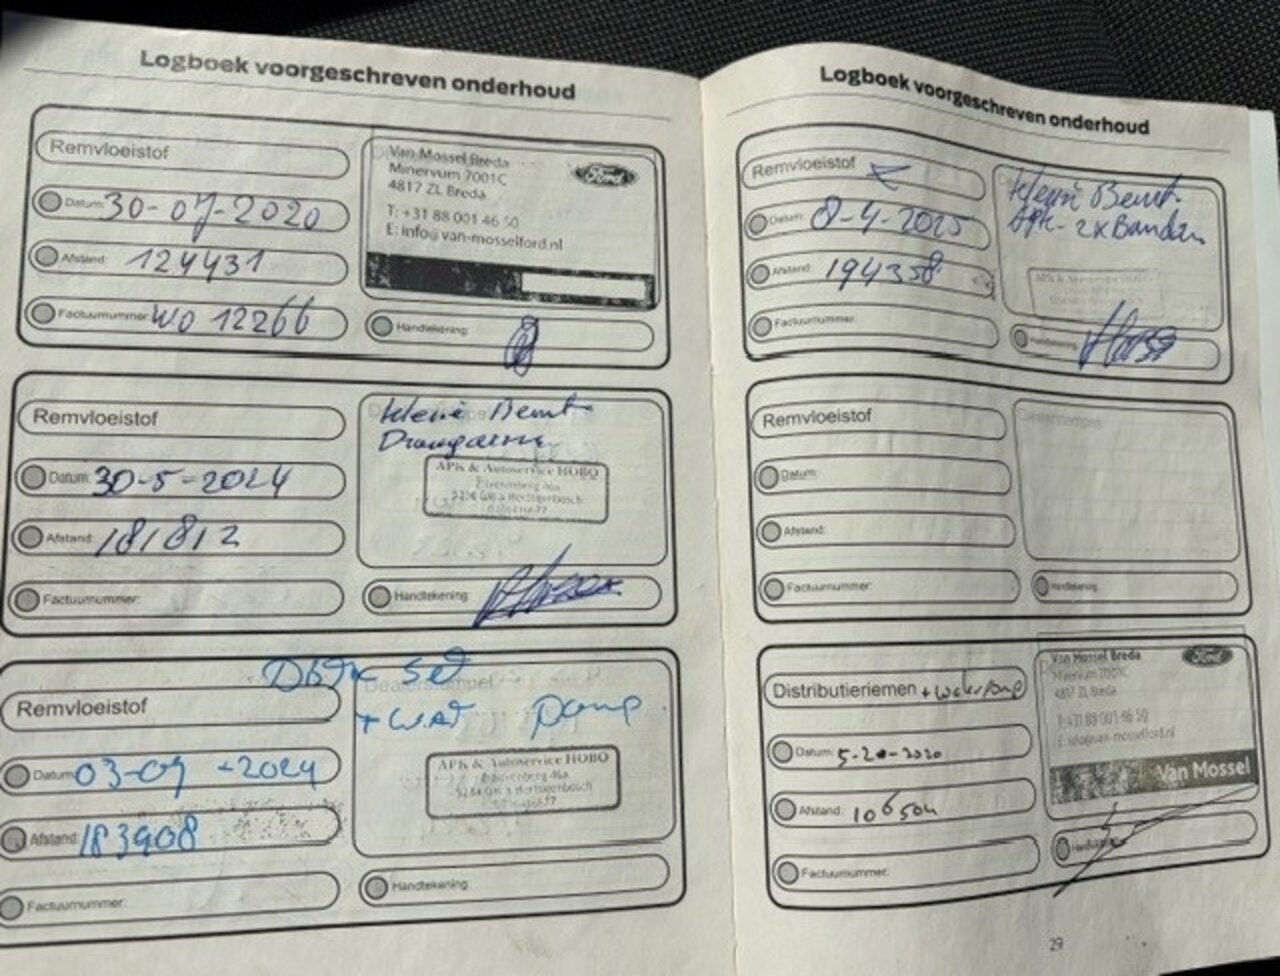 Logboek voorgeschreven onderhoud
Remvloeistof
Datum: 30-07-2020
Afstand: 124431
Factuurnummer: WO 12266
Van Mossel Breda
Minervum 7001C
4817 ZL Breda
T: +31 88 001 46 50
E: info@van-mosselford.nl
Ford
Handtekening:
Remvloeistof
Datum: 30-5-2024
Afstand: 181812
Factuurnummer:
APK & Autoservice HOBO
Handtekening:
Remvloeistof
Datum: 03-09-2024
Afstand: 183908
Factuurnummer:
Dealerstempel
set
+ wat pomp
APK & Autoservice HOBO
Handtekening:
Logboek voorgeschreven onderhoud
Remvloeistof
Datum: 8-4-2025
Afstand: 194358
Factuurnummer:
2x Banden
Handtekening:
Remvloeistof
Datum:
Afstand:
Factuurnummer:
Dealerstempel
Handtekening:
Distributieriemen + waterpomp
Datum: 5-20-2020
Afstand: 106504
Factuurnummer:
Van Mossel Breda
Minervum 7001C
4817 ZL Breda
T: +31 88 001 46 50
E: info@van-mosselford.nl
Ford
Van Mossel
29